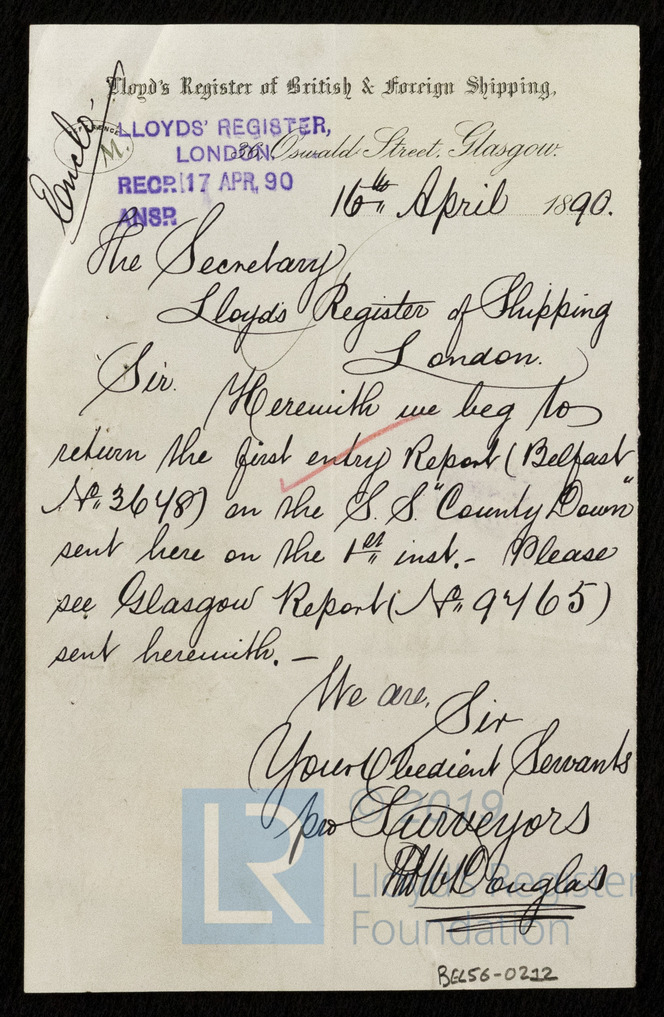 Lloyd's Register of British & Foreign Shipping,
Enclo!
M.
LLOYDS' REGISTER,
LONDON.
36, Oswald Street, Glasgow.
RECD. 17 APR. 90
ANSR
16th April 1890.
The Secretary,
Lloyds Register of Shipping
London.
Sir. Herewith we beg to
return the first entry Report (Belfast
No. 3648) on the S.S. "County Down"
sent here on the 1st inst. - Please
see Glasgow Report (No. 9765)
sent herewith. -
We are, Sir
Your Obedient Servants
pro Surveyors
Douglas
© 2019
LR
Lloyd's Register
Foundation
BEL56-0212